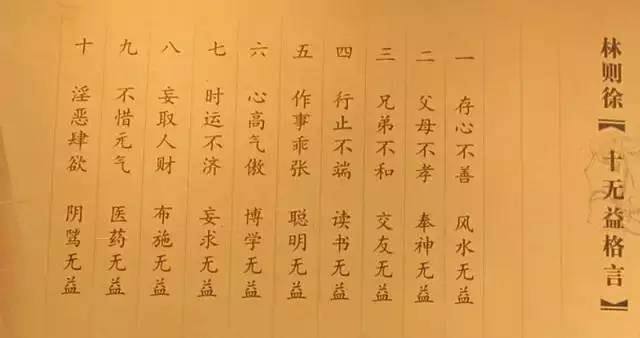 林则徐【十无益格言】
一 存心不善 风水无益
二 父母不孝 奉神无益
三 兄弟不和 交友无益
四 行止不端 读书无益
五 作事乖张 聪明无益
六 心高气傲 博学无益
七 时运不济 妄求无益
八 妄取人财 布施无益
九 不惜元气 医药无益
十 淫恶肆欲 阴骘无益